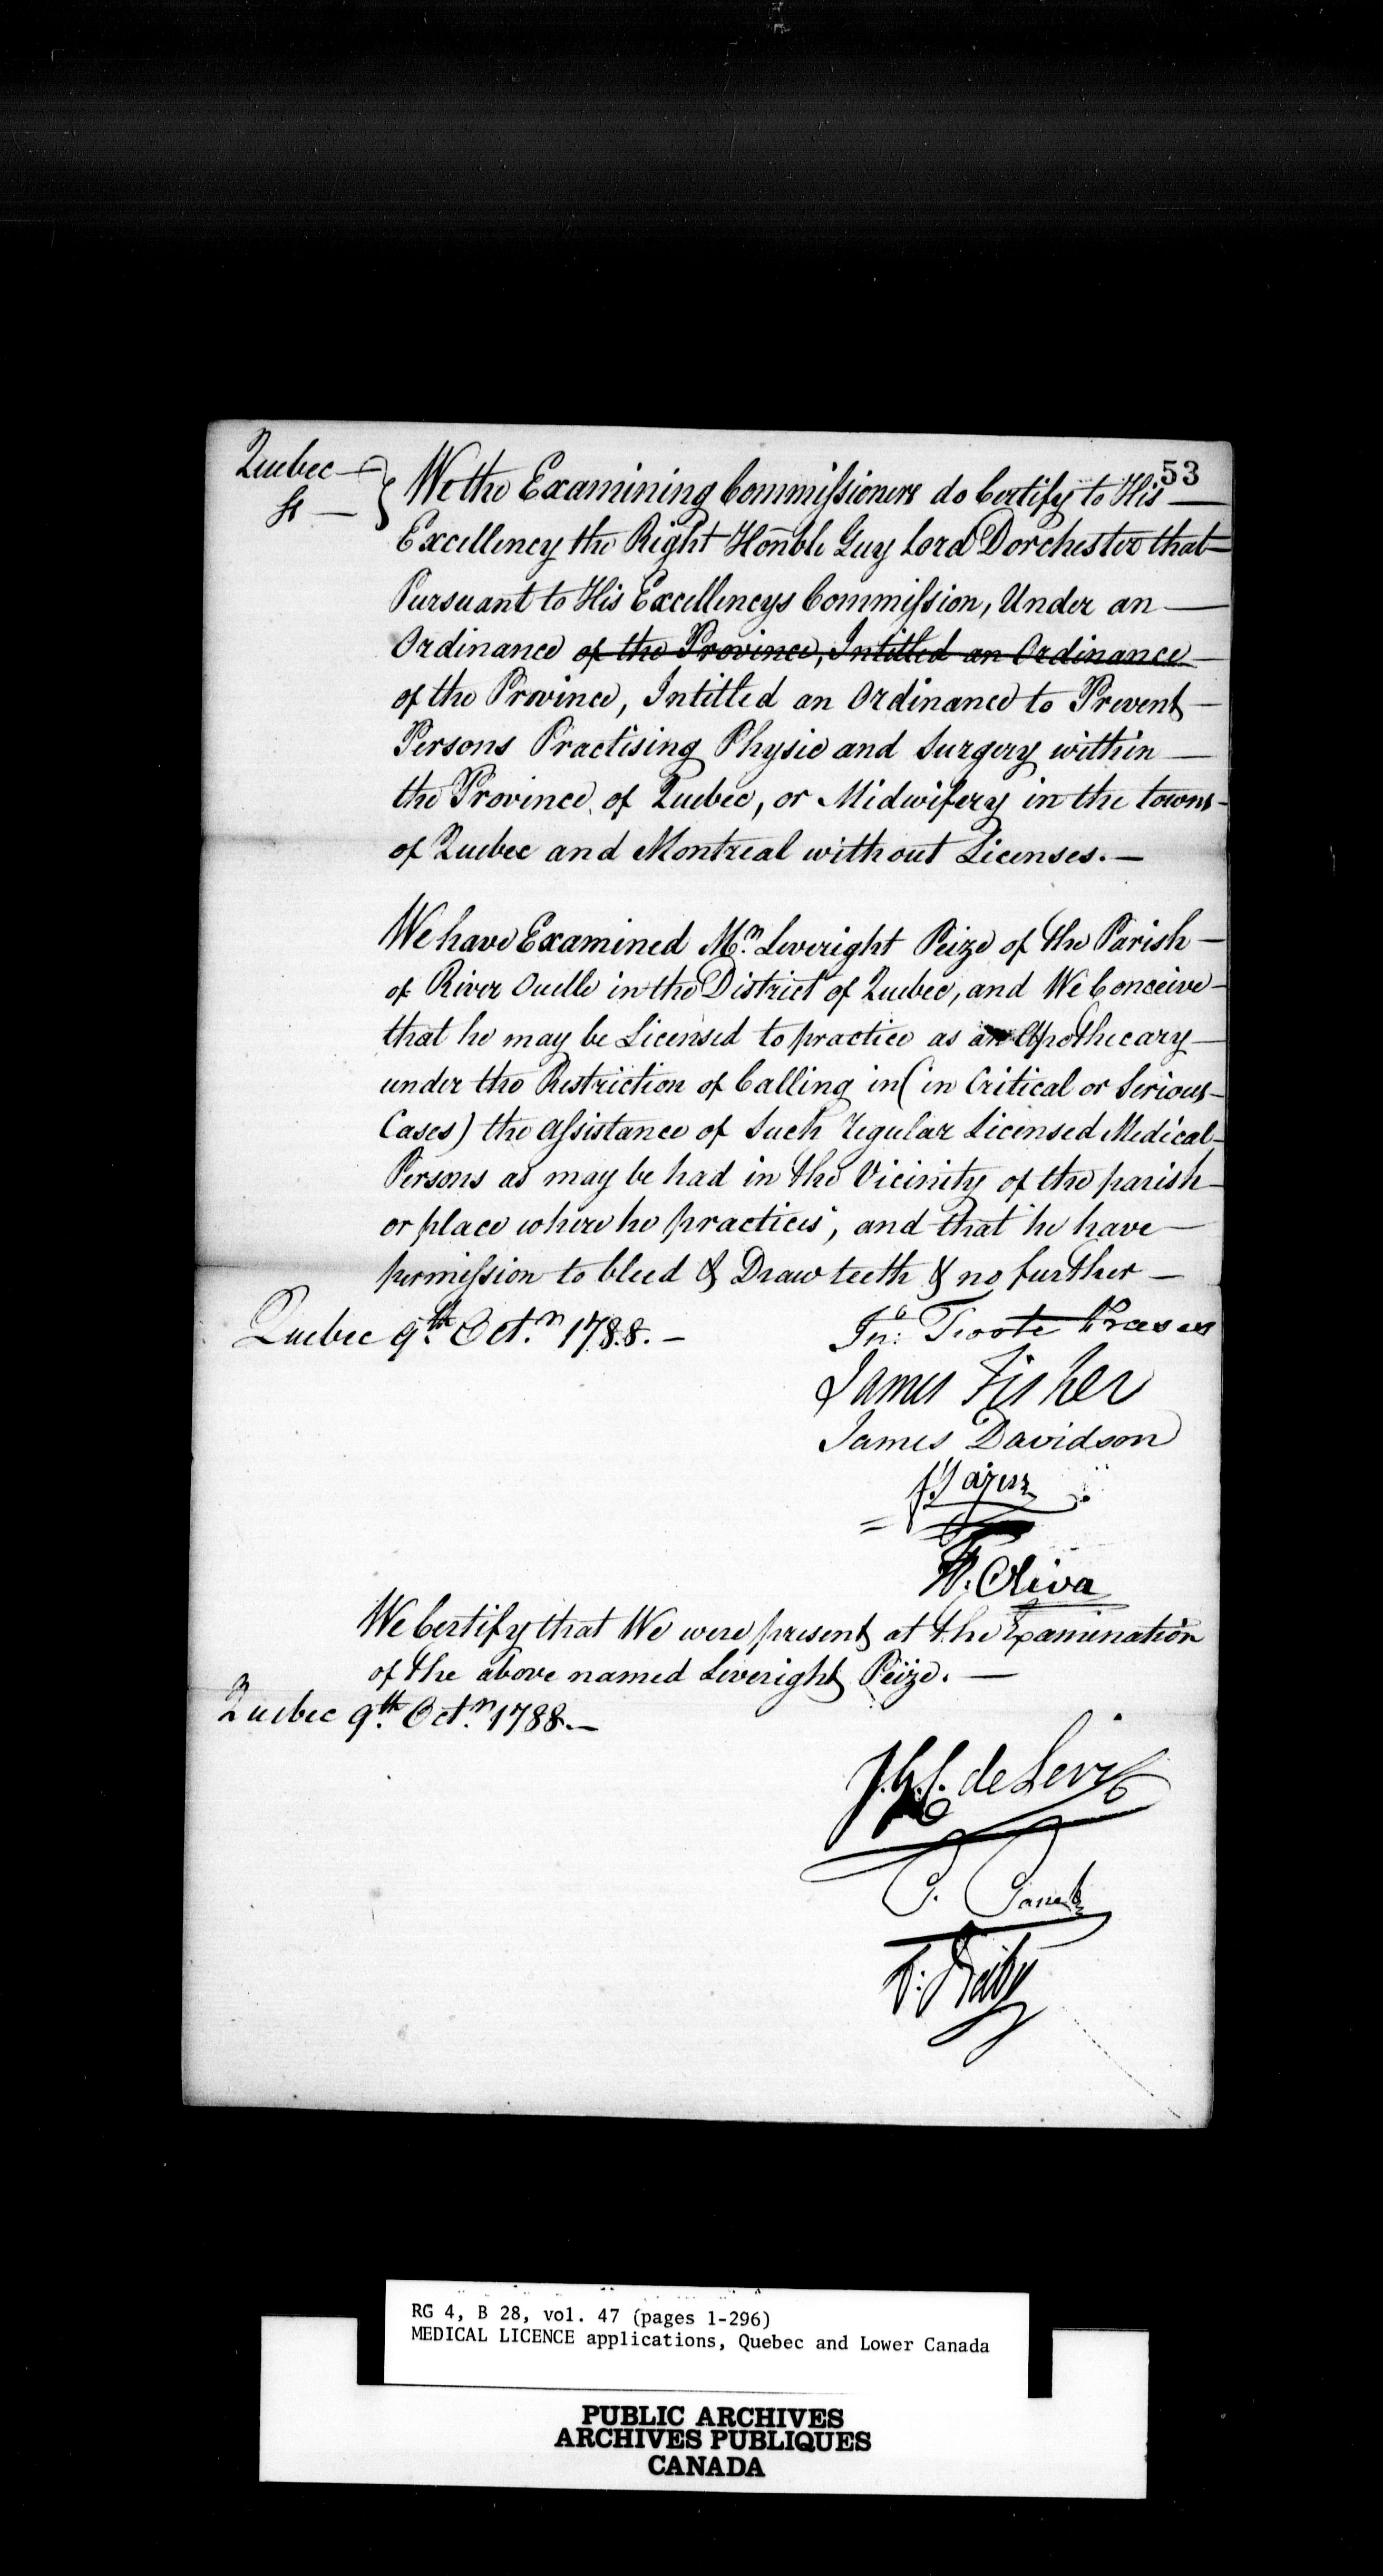 53
Quebec
ſs
We the Examining Commiſsioners do Certify to His
Excellency the Right Honble Guy Lord Dorchester that
Pursuant to His Excellencys Commiſsion, Under an
Ordinance of the Province, Intitled an Ordinance
of the Province, Intitled an Ordinance to Prevent
Persons Practising Physic and Surgery within
the Province of Quebec, or Midwifery in the towns
of Quebec and Montreal without Licenses.
We have Examined Mr. Leveright Peize of the Parish
of River Ouelle in the District of Quebec, and We Conceive
that he may be Licensed to practice as an Apothecary
under the Restriction of Calling in (in Critical or Serious
Cases) the aſsistance of Such regular Licensed Medical
Persons as may be had in the Vicinity of the parish
or place where he practices, and that he have
permiſsion to bleed & Draw teeth & no further
Quebec 9th. Octr. 1788.
James Fisher
James Davidson
F. Oliva
We Certify that We were present at the Examination
of the above named Leveright Peize.
Quebec 9th. Octr. 1788.
de Levi
P. Panet
F: Baby
RG 4, B 28, vol. 47 (pages 1-296)
MEDICAL LICENCE applications, Quebec and Lower Canada
PUBLIC ARCHIVES
ARCHIVES PUBLIQUES
CANADA